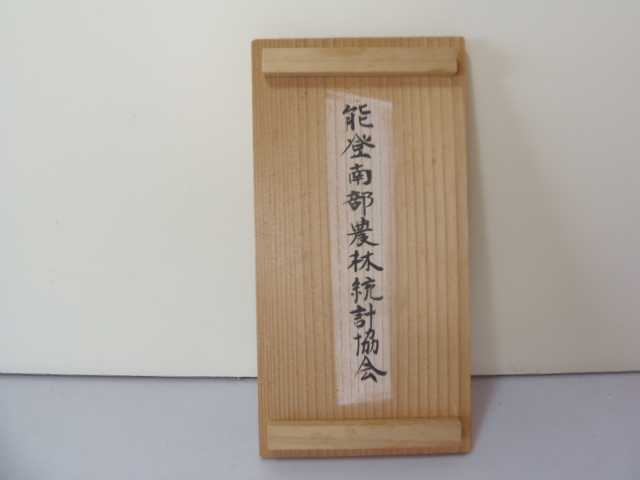 能登南部農林統計協会